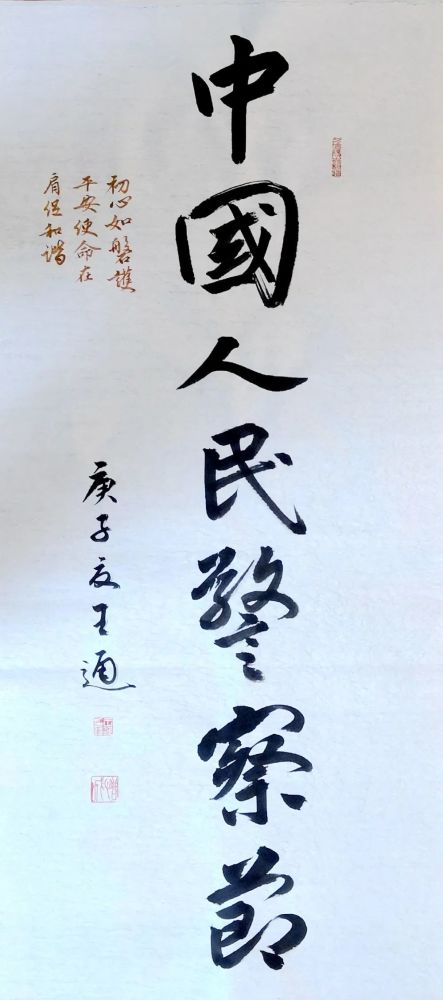 中國人民警察節
初心如磐護
平安使命在
肩促和諧
庚子友王通